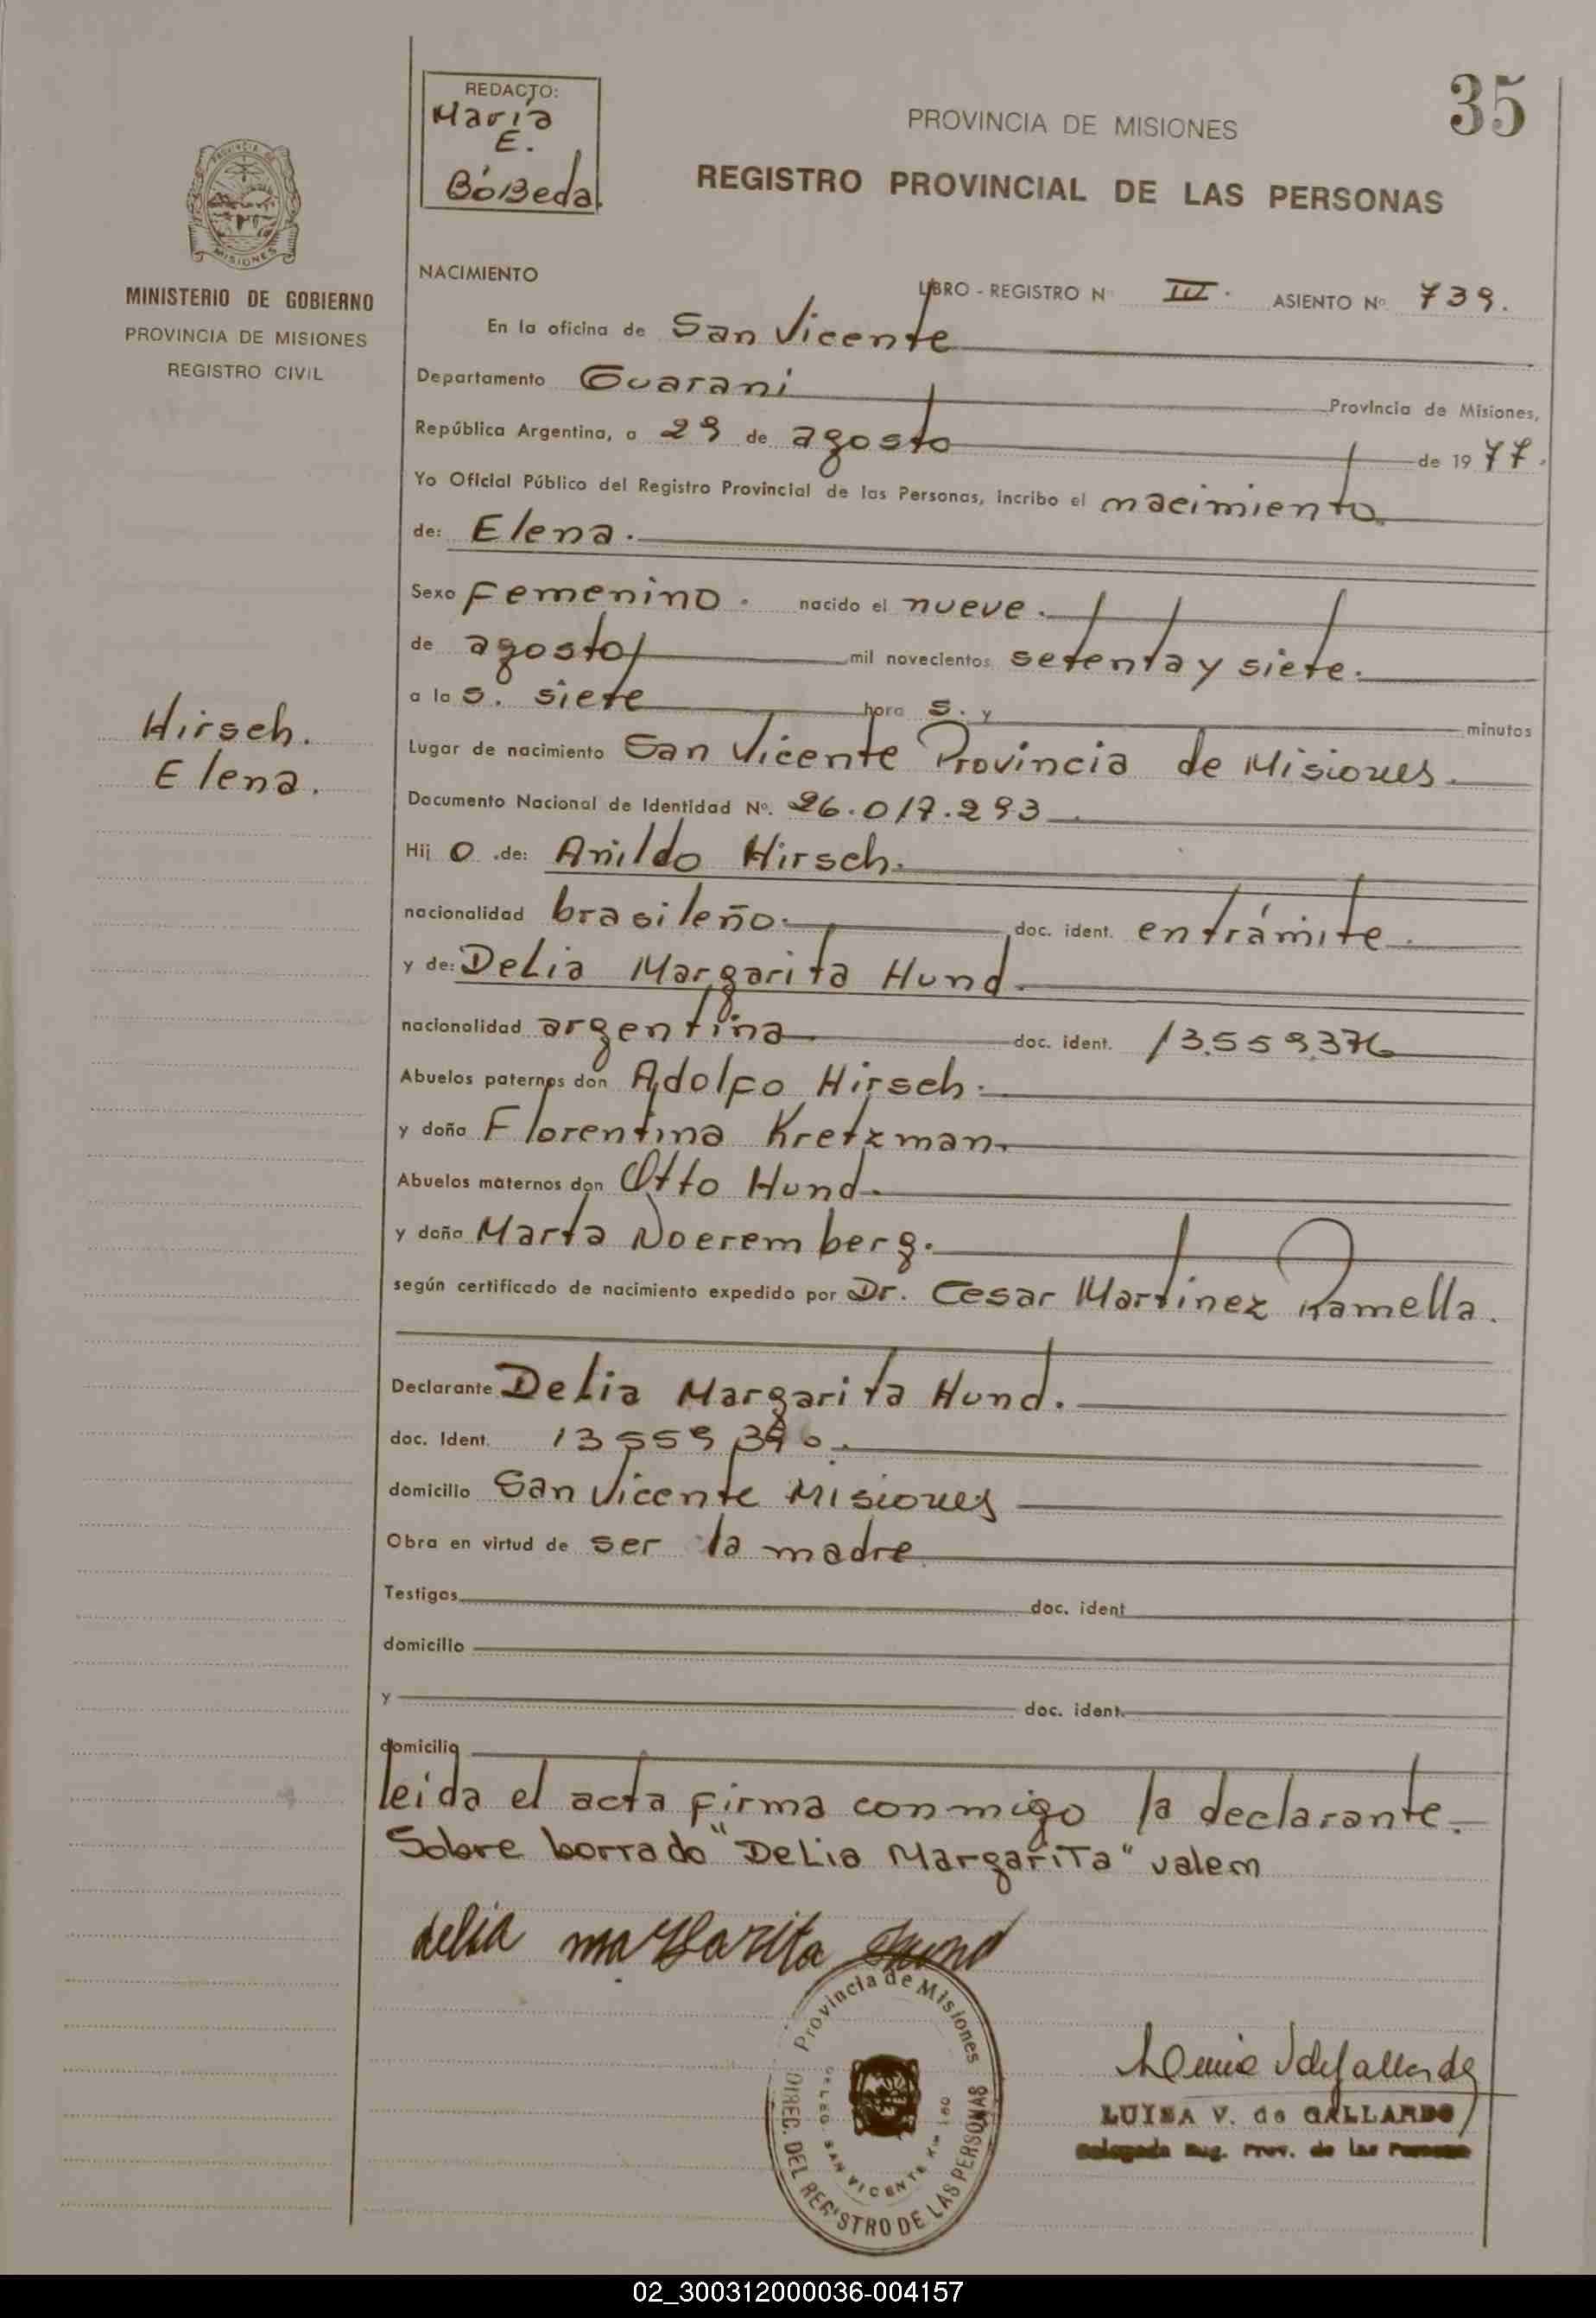 35
REDACTO:
María
E.
BóBeda.
PROVINCIA DE MISIONES
REGISTRO PROVINCIAL DE LAS PERSONAS
PROVINCIA DE
MISIONES
MINISTERIO DE GOBIERNO
PROVINCIA DE MISIONES
REGISTRO CIVIL
NACIMIENTO
LIBRO - REGISTRO Nº III. ASIENTO Nº. 739.
En la oficina de San Vicente
Departamento Guarani Provincia de Misiones,
República Argentina, a 29 de agosto de 1977.
Yo Oficial Público del Registro Provincial de las Personas, incribo el nacimiento
de: Elena.
Sexo Femenino. nacido el nueve.
de agosto mil novecientos setenta y siete.
a las. siete hora s. y minutos
Hirsch.
Elena.
Lugar de nacimiento San Vicente Provincia de Misiones.
Documento Nacional de Identidad Nº. 26.017.293
Hijo de: Anildo Hirsch.
nacionalidad brasileño. doc. ident. en trámite.
y de: Delia Margarita Hund.
nacionalidad argentina doc. ident. 13.559.376
Abuelos paternos don Adolfo Hirsch.
y doña Florentina Kretzman.
Abuelos maternos don Otto Hund.
y doña Marta Noeremberg.
según certificado de nacimiento expedido por Dr. Cesar Martinez Ramella.
Declarante Delia Margarita Hund.
doc. Ident. 13 559
domicilio San Vicente Misiones
Obra en virtud de ser la madre
Testigos doc. ident
domicilio
y doc. ident.
domicilio
leida el acta firma conmigo la declarante.
Sobre borrado "Delia Margarita" valem
delia margarita Hund
Provincia de Misiones
DIREC. DEL REGISTRO DE LAS PERSONAS
DELEG. SAN VICENTE
LUISA V. de GALLARDO
Delegada Reg. Prov. de las Personas
02_300312000036-004157